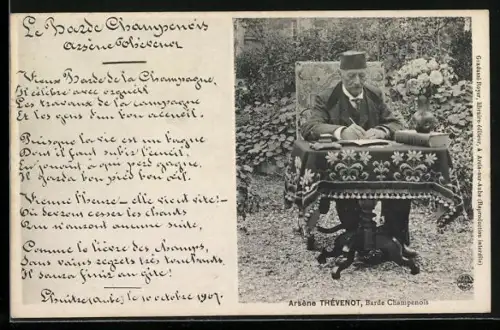 Le Barde Champenois
Arsène Thévenot
Vieux Barde de la Champagne,
Il célèbre avec orgueil
Les travaux de la campagne
Et les gens d'un bon accueil.
Puisque la vie est un bagne
Dont il faut subir l'écueil,
qui perd gagne,
Il garda bon pied bon œil.
Vienne l'heure – elle vient vite! –
Où devront cesser les chants
Qui n'auront aucune suite,
Comme le lièvre des champs,
Sans vains regrets très touchants,
Il saura finir au gîte!
Lhuitre (Aube) le 10 octobre 1907.
Arsène THÉVENOT, Barde Champenois
libraire-éditeur, à Arcis-sur-Aube (Reproduction interdite)